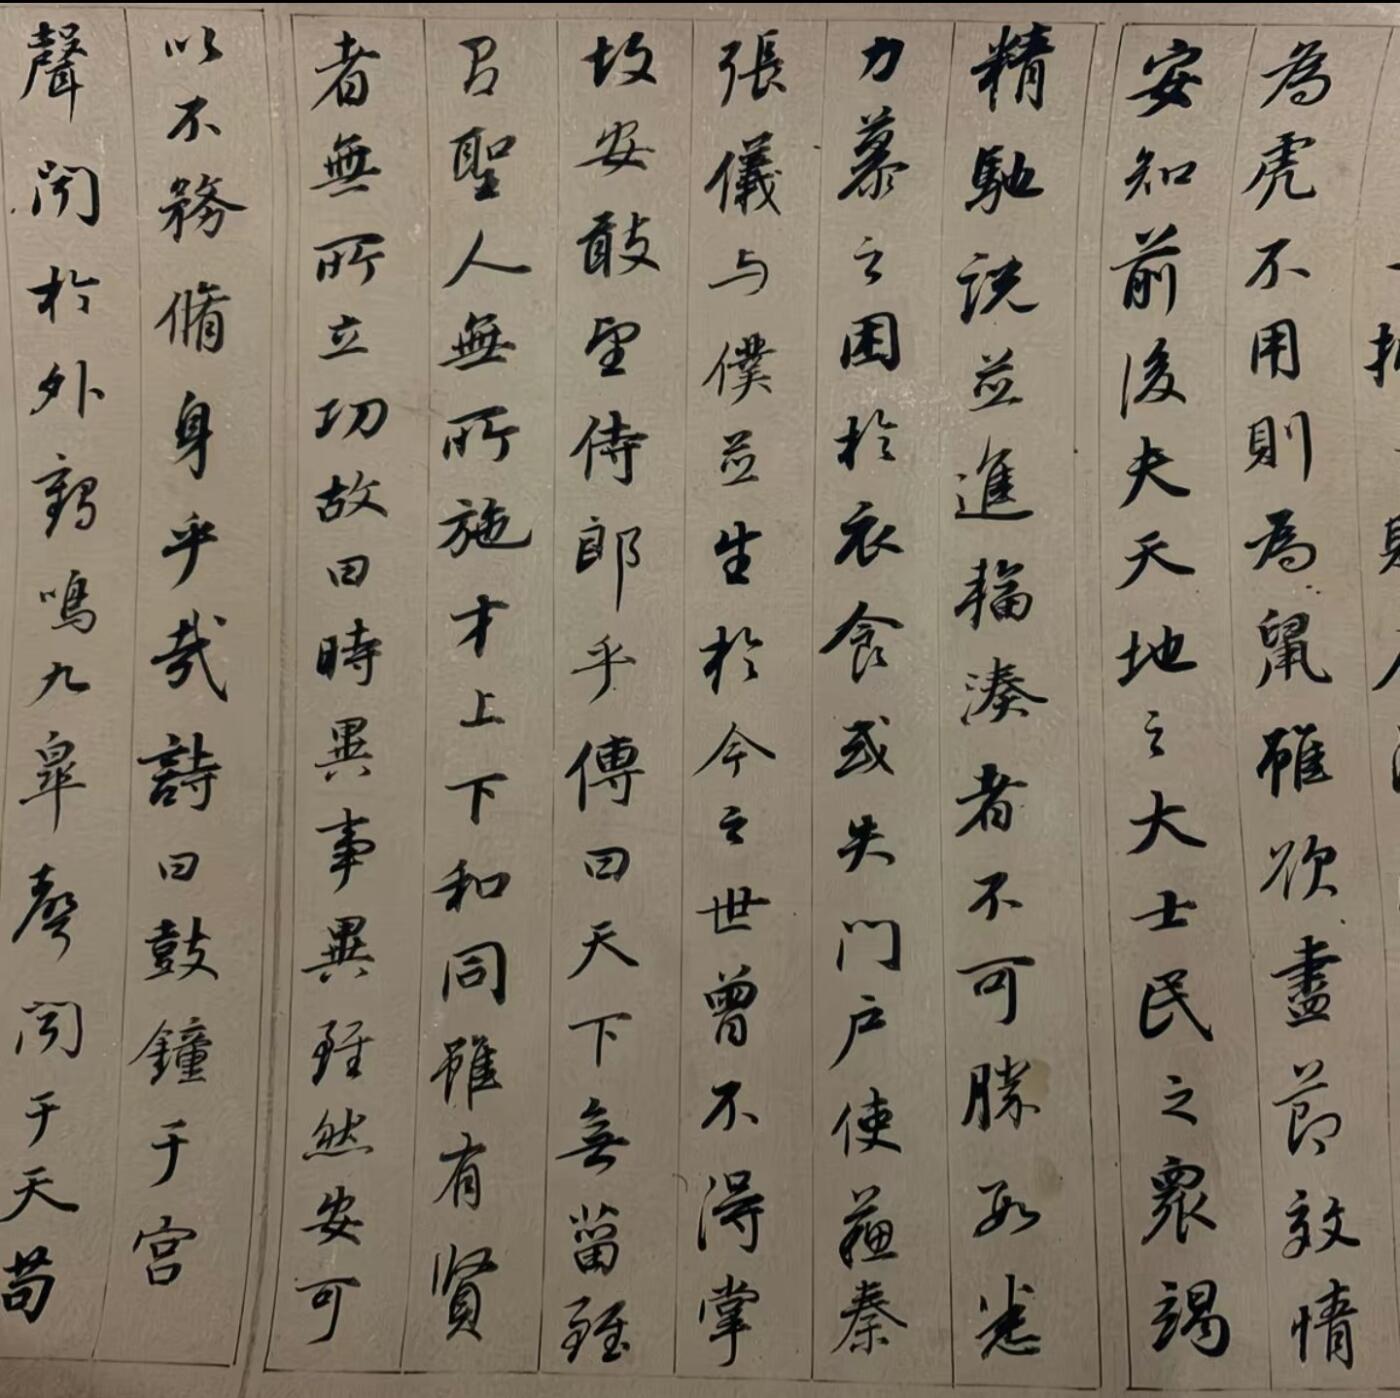 為虎不用則為鼠雖欲盡節效情
安知前後夫天地之大士民之衆竭
精馳說並進輻湊者不可勝數悉
力慕之困於衣食或失門戶使蘇秦
張儀与僕並生於今之世曾不得掌
故安敢望侍郎乎傳曰天下無菑雖
聖人無所施才上下和同雖有賢
者無所立功故曰時異事異雖然安可
以不務脩身乎哉詩曰鼓鐘于宮
聲聞於外鶴鳴九皋聲聞于天苟